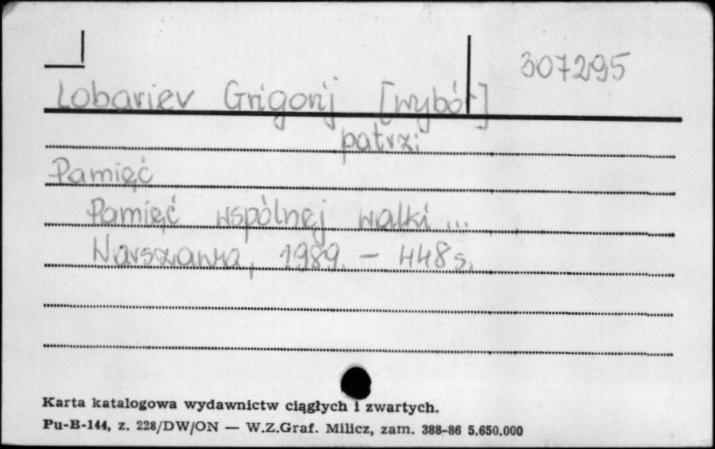 307295
Lobariev Grigorij [wybór]
patrzi
Pamięć
Pamięć wspólnej walki ...
Warszawa, 1989. — 448 s.
Karta katalogowa wydawnictw ciągłych i zwartych.
Pu-B-144, z. 228/DW/ON — W.Z.Graf. Milicz, zam. 388-86 5.650.000